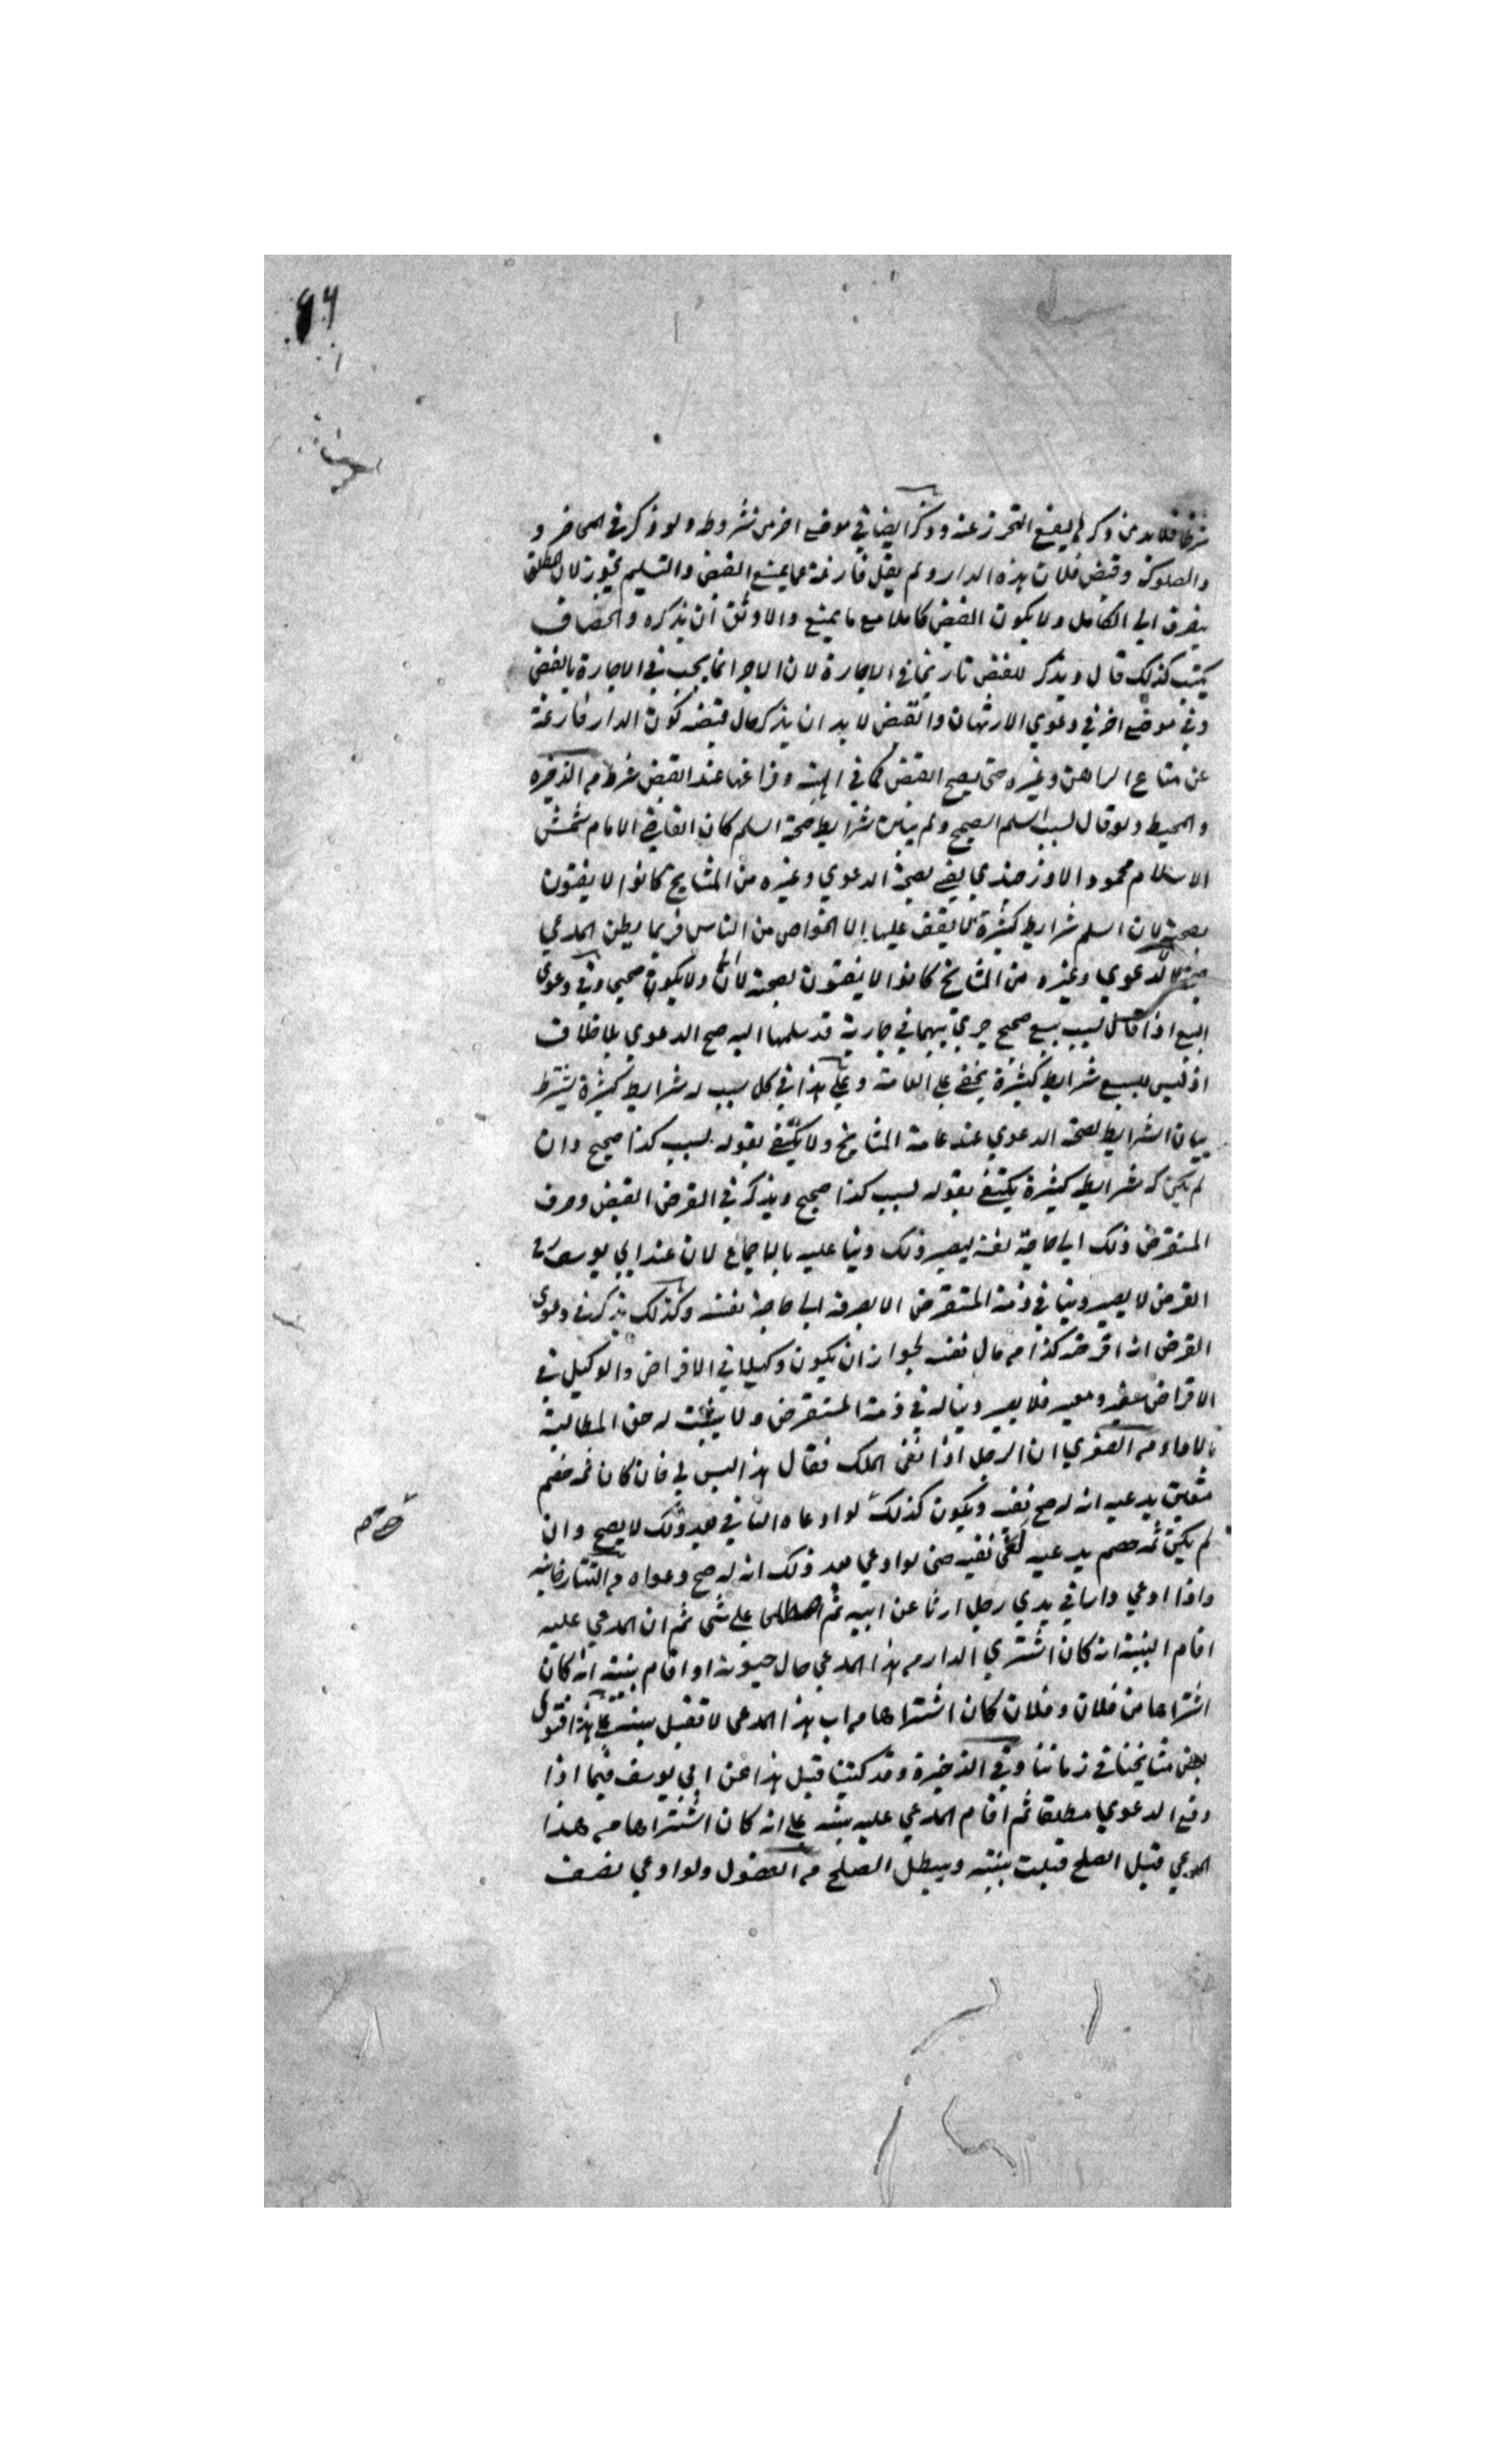 شرطا فلا بد من ذكره ليقع التحرز عنه وذكر ايضا في موضع اخر من شروطه ولو ذكر في المحاضر و
والصكوك وقبض فلان هذه الدار ولم يقل فارغة عما يمنع القبض والتسليم يجوز لان المطلق
يصرف الي الكامل ولا يكون القبض كاملا مع ما يمنع والاوثق ان يذكره والخصاف
يكتب كذلك قال ويذكر للقبض تاريخا في الاجارة لان الاجر انما يجب في الاجارة بالقبض
وفي موضع اخر في دعوي الارتهان والقبض لا بد ان يذكر حال قبضه كون الدار فارغة
عن متاع الراهن وغيره حتى يصح القبض كما في الهبة وفراغها عند القبض شرط م الذخيره
والمحيط ولو قال بسبب السلم الصحيح ولم يبين شرايط صحة السلم كان القاضي الامام شمس
الاسلام محمود الاوزجندي يفتي بصحة الدعوي وغيره من المشايخ كانوا لا يفتون
بصحته لان السلم شرايط كثيرة لا يقف عليها الا الخواص من الناس فربما يظن المدعي
الدعوي وغيره من المشايخ كانوا لا يفتون بصحته ولا يكون صحيحا وفي دعوى
البيع اذا قال بسبب بيع صحيح جري بينهما في جارية قد سلمها اليه صح الدعوي بلا خلاف
اذ ليس للبيع شرايط كثيرة يخفي علي العامة وعلي هذا في كل سبب له شرايط كثيرة يشترط
بيان الشرايط لصحة الدعوي عند عامة المشايخ ولا يكتفي بقوله بسبب كذا صحيح وان
لم يكن له شرايط كثيرة يكتفي بقوله بسبب كذا صحيح ويذكر في القرض القبض وصرف
المستقرض ذلك الي حاجة نفسه ليصير ذلك دينا عليه بالاجماع لان عند ابي يوسف
القرض لا يصير دينا في ذمة المستقرض الا بصرفه الي حاجة نفسه وكذلك يذكر في دعوى
القرض انه اقرضه كذا م مال نفسه لجواز ان يكون وكيلا في الاقراض والوكيل في
الاقراض سفير ومعبر فلا يصير دينا له في ذمة المستقرض ولا يثبت له حق المطالبة
بالاداء م الصغري ان الرجل اذا نفى الملك فقال هذا ليس لي فان كان ثمه خصم
متعين يدعيه انه له صح نفيه ويكون كذلك لو ادعاه الثاني بعد ذلك لا يصح وان
لم يكن ثمه خصم يدعيه نفيه حتى لو ادعي بعد ذلك انه له صح دعواه م التتارخانيه
واذا ادعي دارا في يدي رجل ارثا عن ابيه ثم اصطلحا علي شي ثم ان المدعي عليه
اقام البينة انه كان اشتري الدار م هذا المدعي حال حيوته او اقام بينة انه كان
اشتراها من فلان وفلان كان اشتراها م اب هذا المدعي لا تقبل بينته علي هذا فتوى
بعض مشايخنا في زماننا وفي الذخيرة وقد كتبنا قبل هذا عن ابي يوسف فيما اذا
وقع الدعوي مطلقا ثم اقام المدعي عليه بينة علي انه كان اشتراها م هذا
المدعي قبل الصلح قبلت بينته ويبطل الصلح م الفصول ولو ادعي نصف